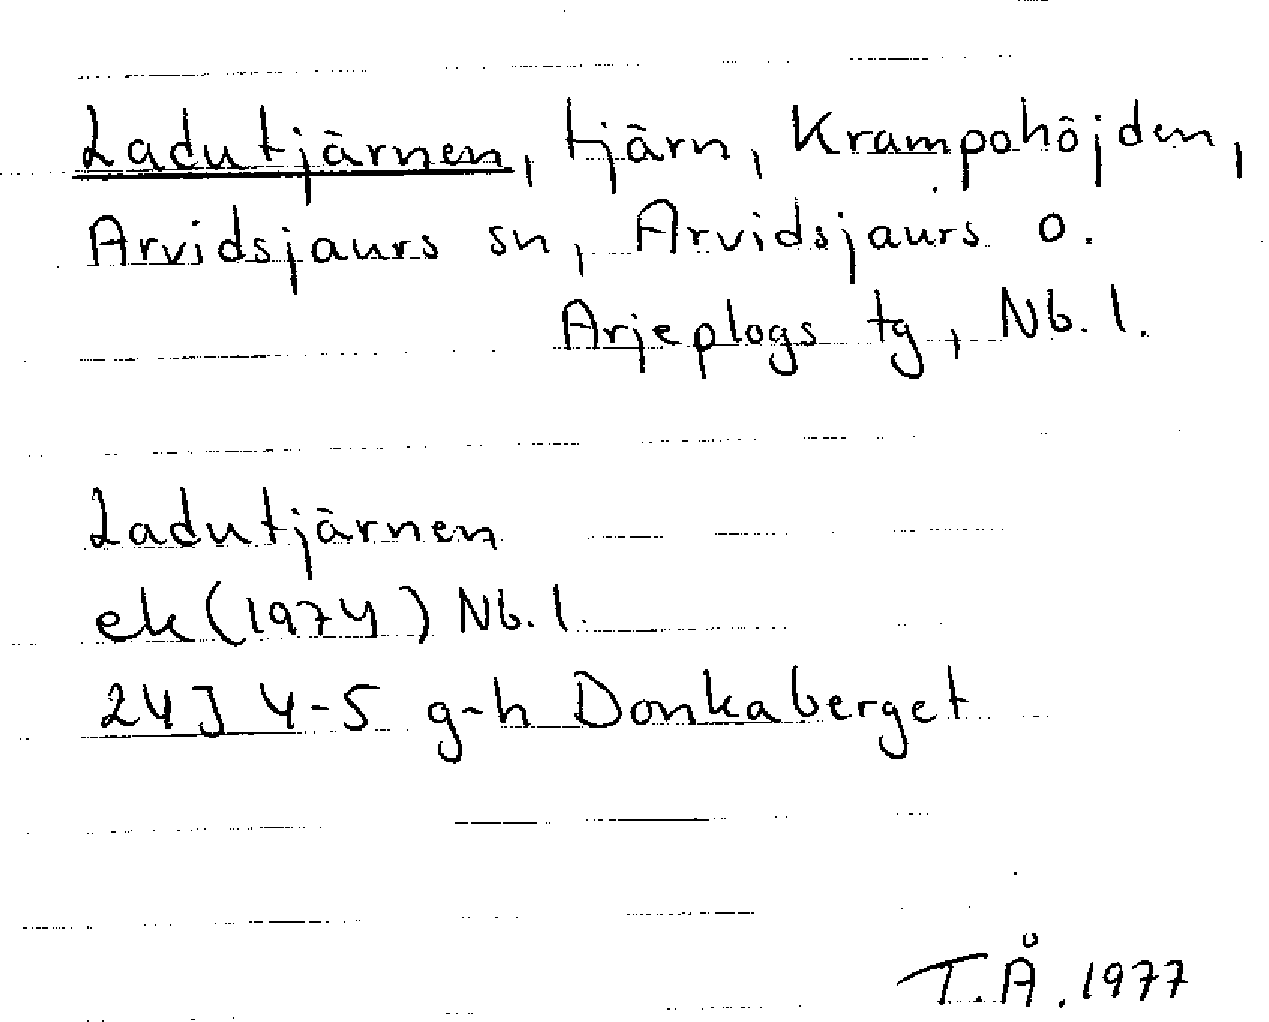 Ladutjärnen, tjärn, Krampohöjden,
Arvidsjaurs sn, Arvidsjaurs o.
Arjeplogs tg, Nb. l.
Ladutjärnen
ek (1974) Nb. l.
24J 4-5 g-h Donkaberget
T.Å. 1977